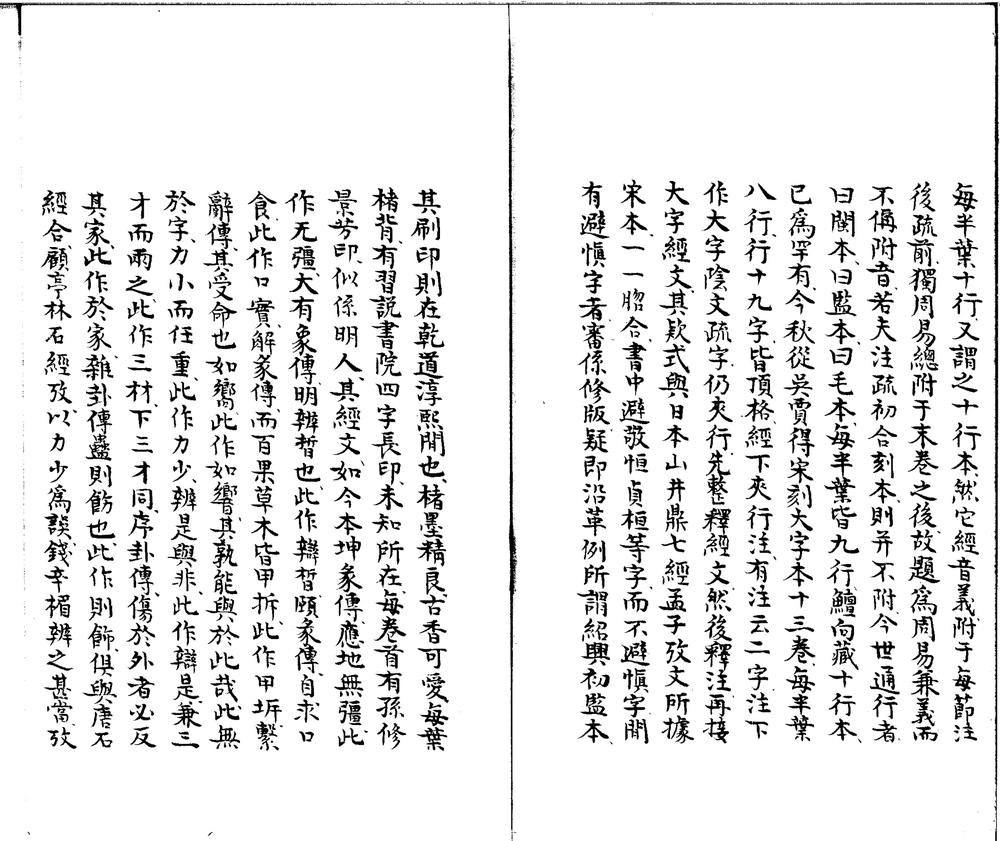 每半葉十行又謂之十行本然它經音義附于每節注
後疏前獨周易總附于末卷之後故題爲周易兼義而
不偁附音若夫注疏初合刻本則并不附今世通行者
曰閩本曰監本曰毛本每半葉皆九行鱣向藏十行本
已爲罕有今秋從吳賈得宋刻大字本十三卷每半葉
八行行十九字皆頂格經下夾行注有注云二字注下
作大字陰文疏字仍夾行先整釋經文然後釋注再接
大字經文其欵式與日本山井鼎七經孟子攷文所據
宋本一一脗合書中避敬恒貞桓等字而不避慎字間
有避慎字者審係修版疑即沿革例所謂紹興初監本
其刷印則在乾道淳熙間也楮墨精良古香可愛每葉
楮背有習説書院四字長印未知所在每卷首有孫修
景芳印似係明人其經文如今本坤彖傳應地無疆此
作无疆大有象傳明辨晳也此作辯晳頤彖傳自求口
食此作口實解彖傳而百果草木皆甲拆此作甲坼繫
辭傳其受命也如嚮此作如響其孰能與於此哉此無
於字力小而任重此作力少辨是與非此作辯是兼三
才而兩之此作三材下三才同序卦傳傷於外者必反
其家此作於家雜卦傳蠱則飭也此作則飾俱與唐石
經合顧亭林石經攷以力少爲誤錢辛楣辨之甚當攷